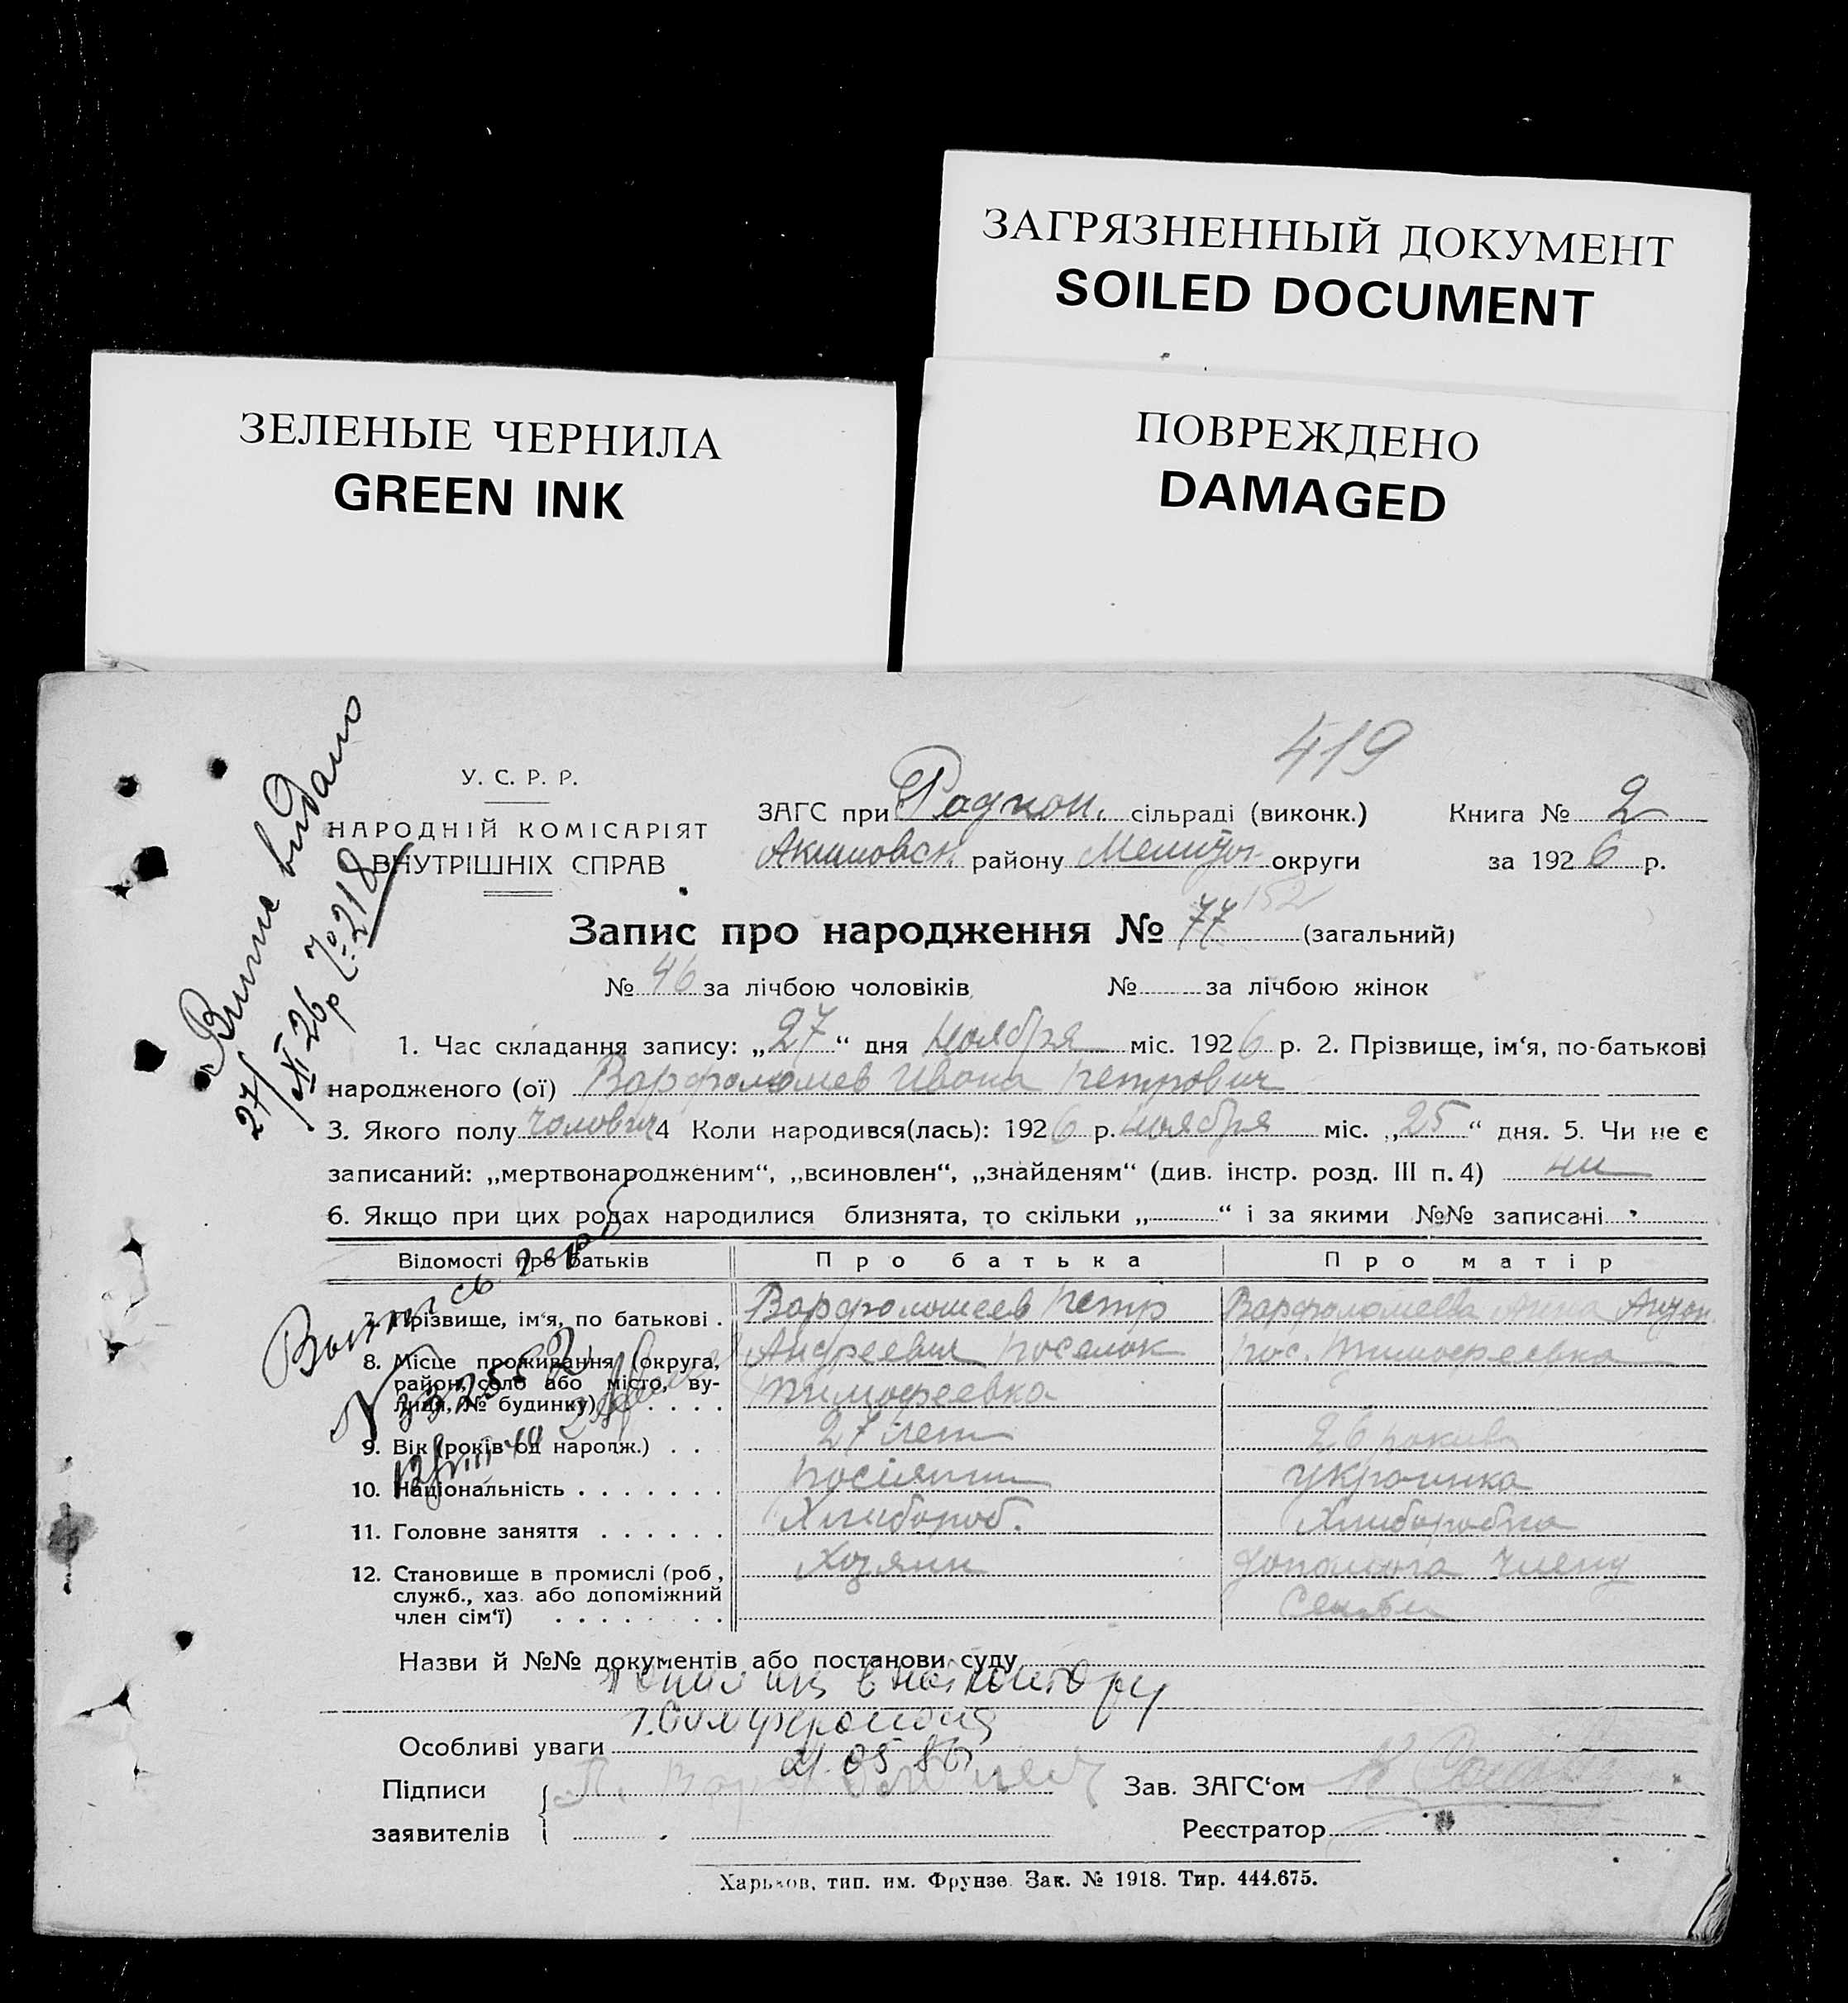 ЗАГРЯЗНЕННЫЙ ДОКУМЕНТ
SOILED DOCUMENT
ЗЕЛЕНЫЕ ЧЕРНИЛА
GREEN INK
ПОВРЕЖДЕНО
DAMAGED
419
У. С. Р. Р.
НАРОДНІЙ КОМІСАРІЯТ
ВНУТРІШНІХ СПРАВ
ЗАГС при Радион. сільраді (виконк.) Книга № 2
Акимовск. району Мелитоп. округи за 1926 р.
Запис про народження № 77 152 (загальний)
№ 46 за лічбою чоловіків № за лічбою жінок
видано
27/XI 26 р № 218
1. Час складання запису: „27“ дня ноября міс. 1926 р. 2. Прізвище, ім‘я, по-батькові
народженого (ої) Варфоломеев Ивана Петрович
3. Якого полу чолович 4 Коли народився(лась): 1926 р. ноября міс. „25“ дня. 5. Чи не є
записаний: „мертвонародженим“, „всиновлен“, „знайденям“ (див. інстр. розд. III п. 4) ни
6. Якщо при цих родах народилися близнята, то скільки „ “ і за якими №№ записані
Відомості про батьків Про батька Про матір
7. Прізвище, ім‘я, по батькові . Варфоломеев Петр Варфоломеева Анна Антон.
8. Місце проживання (округа, Андреевич поселок пос. Тимофеевка
район, село або місто, ву- Тимофеевка
лиця, № будинку) . . . .
9. Вік (років од народж.) . . 27 лет 26 рокив
10. Національність . . . . . . . росіянин украинка
11. Головне заняття . . . . . . Хлибороб. Хлиборобка
12. Становище в промислі (роб., Хозяин допомога члену
служб., хаз. або допоміжний семьи
член сім‘ї) . . . . . . . .
Назви й №№ документів або постанови суду
в
г. Симферополь
Особливі уваги
21.05.86
Підписи П. Варфоломеев Зав. ЗАГС‘ом
заявителів Реєстратор
Харьков, тип. им. Фрунзе. Зак. № 1918. Тир. 444.675.